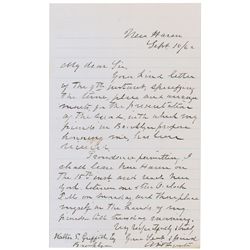 New Haven
Sept 10/62
My dear Sir,
Your kind letter
of the 9th instant, specifying
the time, place and arrange
ments for the presentation
of the sword with which my
friends in Brooklyn propose
honoring me, has been
received.
Providence permitting, I
shall leave New Haven on
the 15th inst and reach New
York between one & two o'clock
P.M. on Monday and then place
myself in the hands of my
friends till Tuesday evening.
Very respectfully
Your friend & servant
Walter S. Griffith Esq
Brooklyn